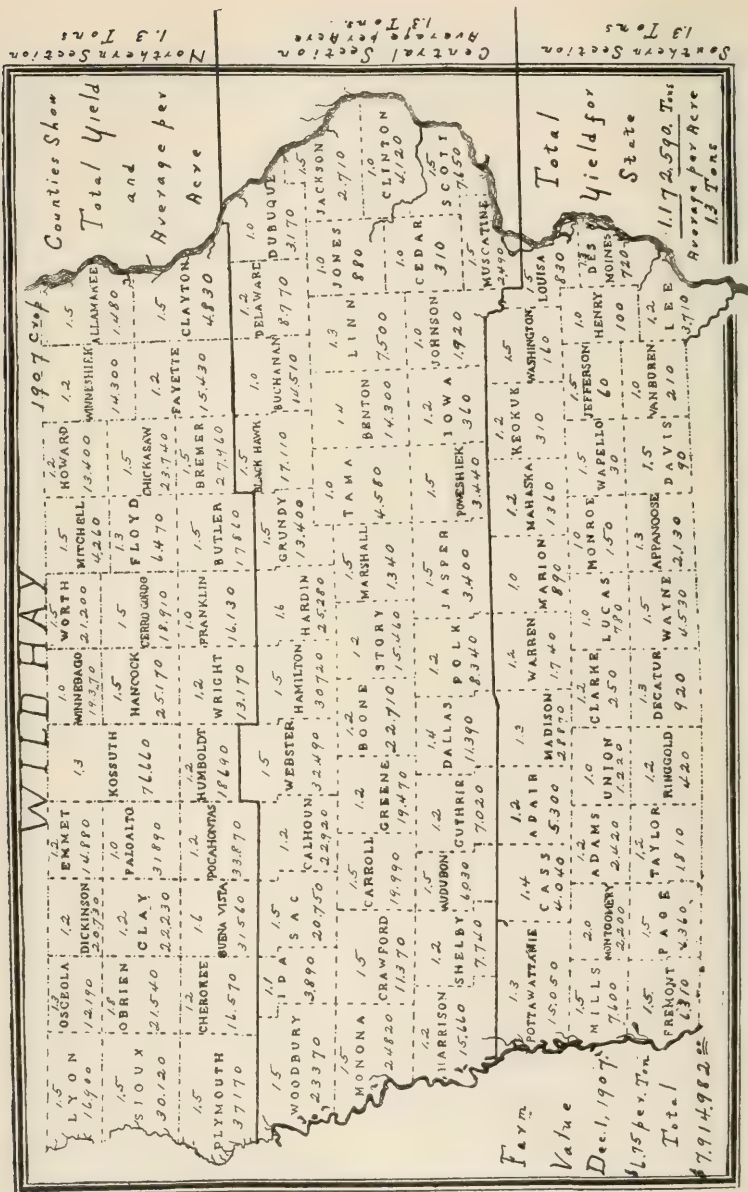 WILD HAY
1907 Crop
Counties Show
Total Yield
and
Average per
Acre
Northern Section
1.3 Tons
Central Section
Average per Acre
1.3 Tons.
Southern Section
1.3 Tons
1.5
LYON
16.900
1.3
OSCEOLA
12.190
1.2
DICKINSON
20.730
1.2
EMMET
14.880
1.3
KOSSUTH
76.660
1.0
WINNEBAGO
19.370
1.5
WORTH
21.200
1.5
MITCHELL
4.260
1.2
HOWARD
13.400
1.2
WINNESHIEK
14.300
1.5
ALLAMAKEE
1.480
1.5
SIOUX
30.120
1.8
OBRIEN
21.540
1.2
CLAY
22.230
1.0
PALO ALTO
31.890
1.5
HANCOCK
25.170
1.5
CERRO GORDO
18.910
1.3
FLOYD
6.470
1.5
CHICKASAW
23.740
1.2
FAYETTE
15.430
1.5
CLAYTON
4.830
1.5
PLYMOUTH
37.170
1.2
CHEROKEE
16.570
1.6
BUENA VISTA
31.560
1.2
POCAHONTAS
33.870
1.2
HUMBOLDT
18.690
1.2
WRIGHT
13.170
1.0
FRANKLIN
16.130
1.5
BUTLER
17.860
1.5
BREMER
27.960
1.5
WOODBURY
23.370
1.1
IDA
3.890
1.5
SAC
20.750
1.2
CALHOUN
22.920
1.5
WEBSTER
32.490
1.5
HAMILTON
30.720
1.6
HARDIN
25.280
1.5
GRUNDY
13.400
1.5
BLACK HAWK
17.110
1.0
BUCHANAN
14.510
1.2
DELAWARE
8.770
1.0
DUBUQUE
3.170
1.5
MONONA
24.820
1.5
CRAWFORD
11.370
1.5
CARROLL
19.990
1.2
GREENE
19.470
1.2
BOONE
22.710
1.2
STORY
15.460
1.5
MARSHALL
1.340
1.0
TAMA
4.580
1.4
BENTON
14.300
1.3
LINN
7.500
1.0
JONES
880
1.5
JACKSON
2.710
1.0
CLINTON
4.120
1.2
HARRISON
15.660
1.2
SHELBY
7.740
1.5
AUDUBON
6.030
1.2
GUTHRIE
7.020
1.4
DALLAS
11.390
1.2
POLK
8.340
1.5
JASPER
3.400
1.5
POWESHIEK
3.440
1.2
IOWA
360
1.0
JOHNSON
1.920
1.0
CEDAR
310
1.5
SCOTT
7.650
1.5
MUSCATINE
2.490
1.3
POTTAWATTAMIE
15.050
1.4
CASS
4.040
1.2
ADAIR
5.300
1.3
MADISON
1.2
WARREN
1.740
1.0
MARION
890
1.2
MAHASKA
1360
1.2
KEOKUK
310
1.5
WASHINGTON
160
1.5
LOUISA
830
1.5
MILLS
7.600
2.0
MONTGOMERY
2.200
1.2
ADAMS
2.420
1.0
UNION
1.220
1.2
CLARKE
250
1.0
LUCAS
780
1.0
MONROE
150
1.5
WAPELLO
30
1.5
JEFFERSON
60
1.0
HENRY
100
DES
MOINES
720
1.5
FREMONT
6.310
1.5
PAGE
4.360
1.2
TAYLOR
1.810
1.2
RINGGOLD
420
1.3
DECATUR
920
1.5
WAYNE
4.530
1.3
APPANOOSE
2.130
1.5
DAVIS
90
1.0
VAN BUREN
210
1.2
LEE
3.710
Farm
Value
Dec. 1, 1907.
$6.75 per. Ton
Total
$7.914.982.00
Total
Yield for
State
1.172.590. Tons
Average per Acre
1.3 Tons